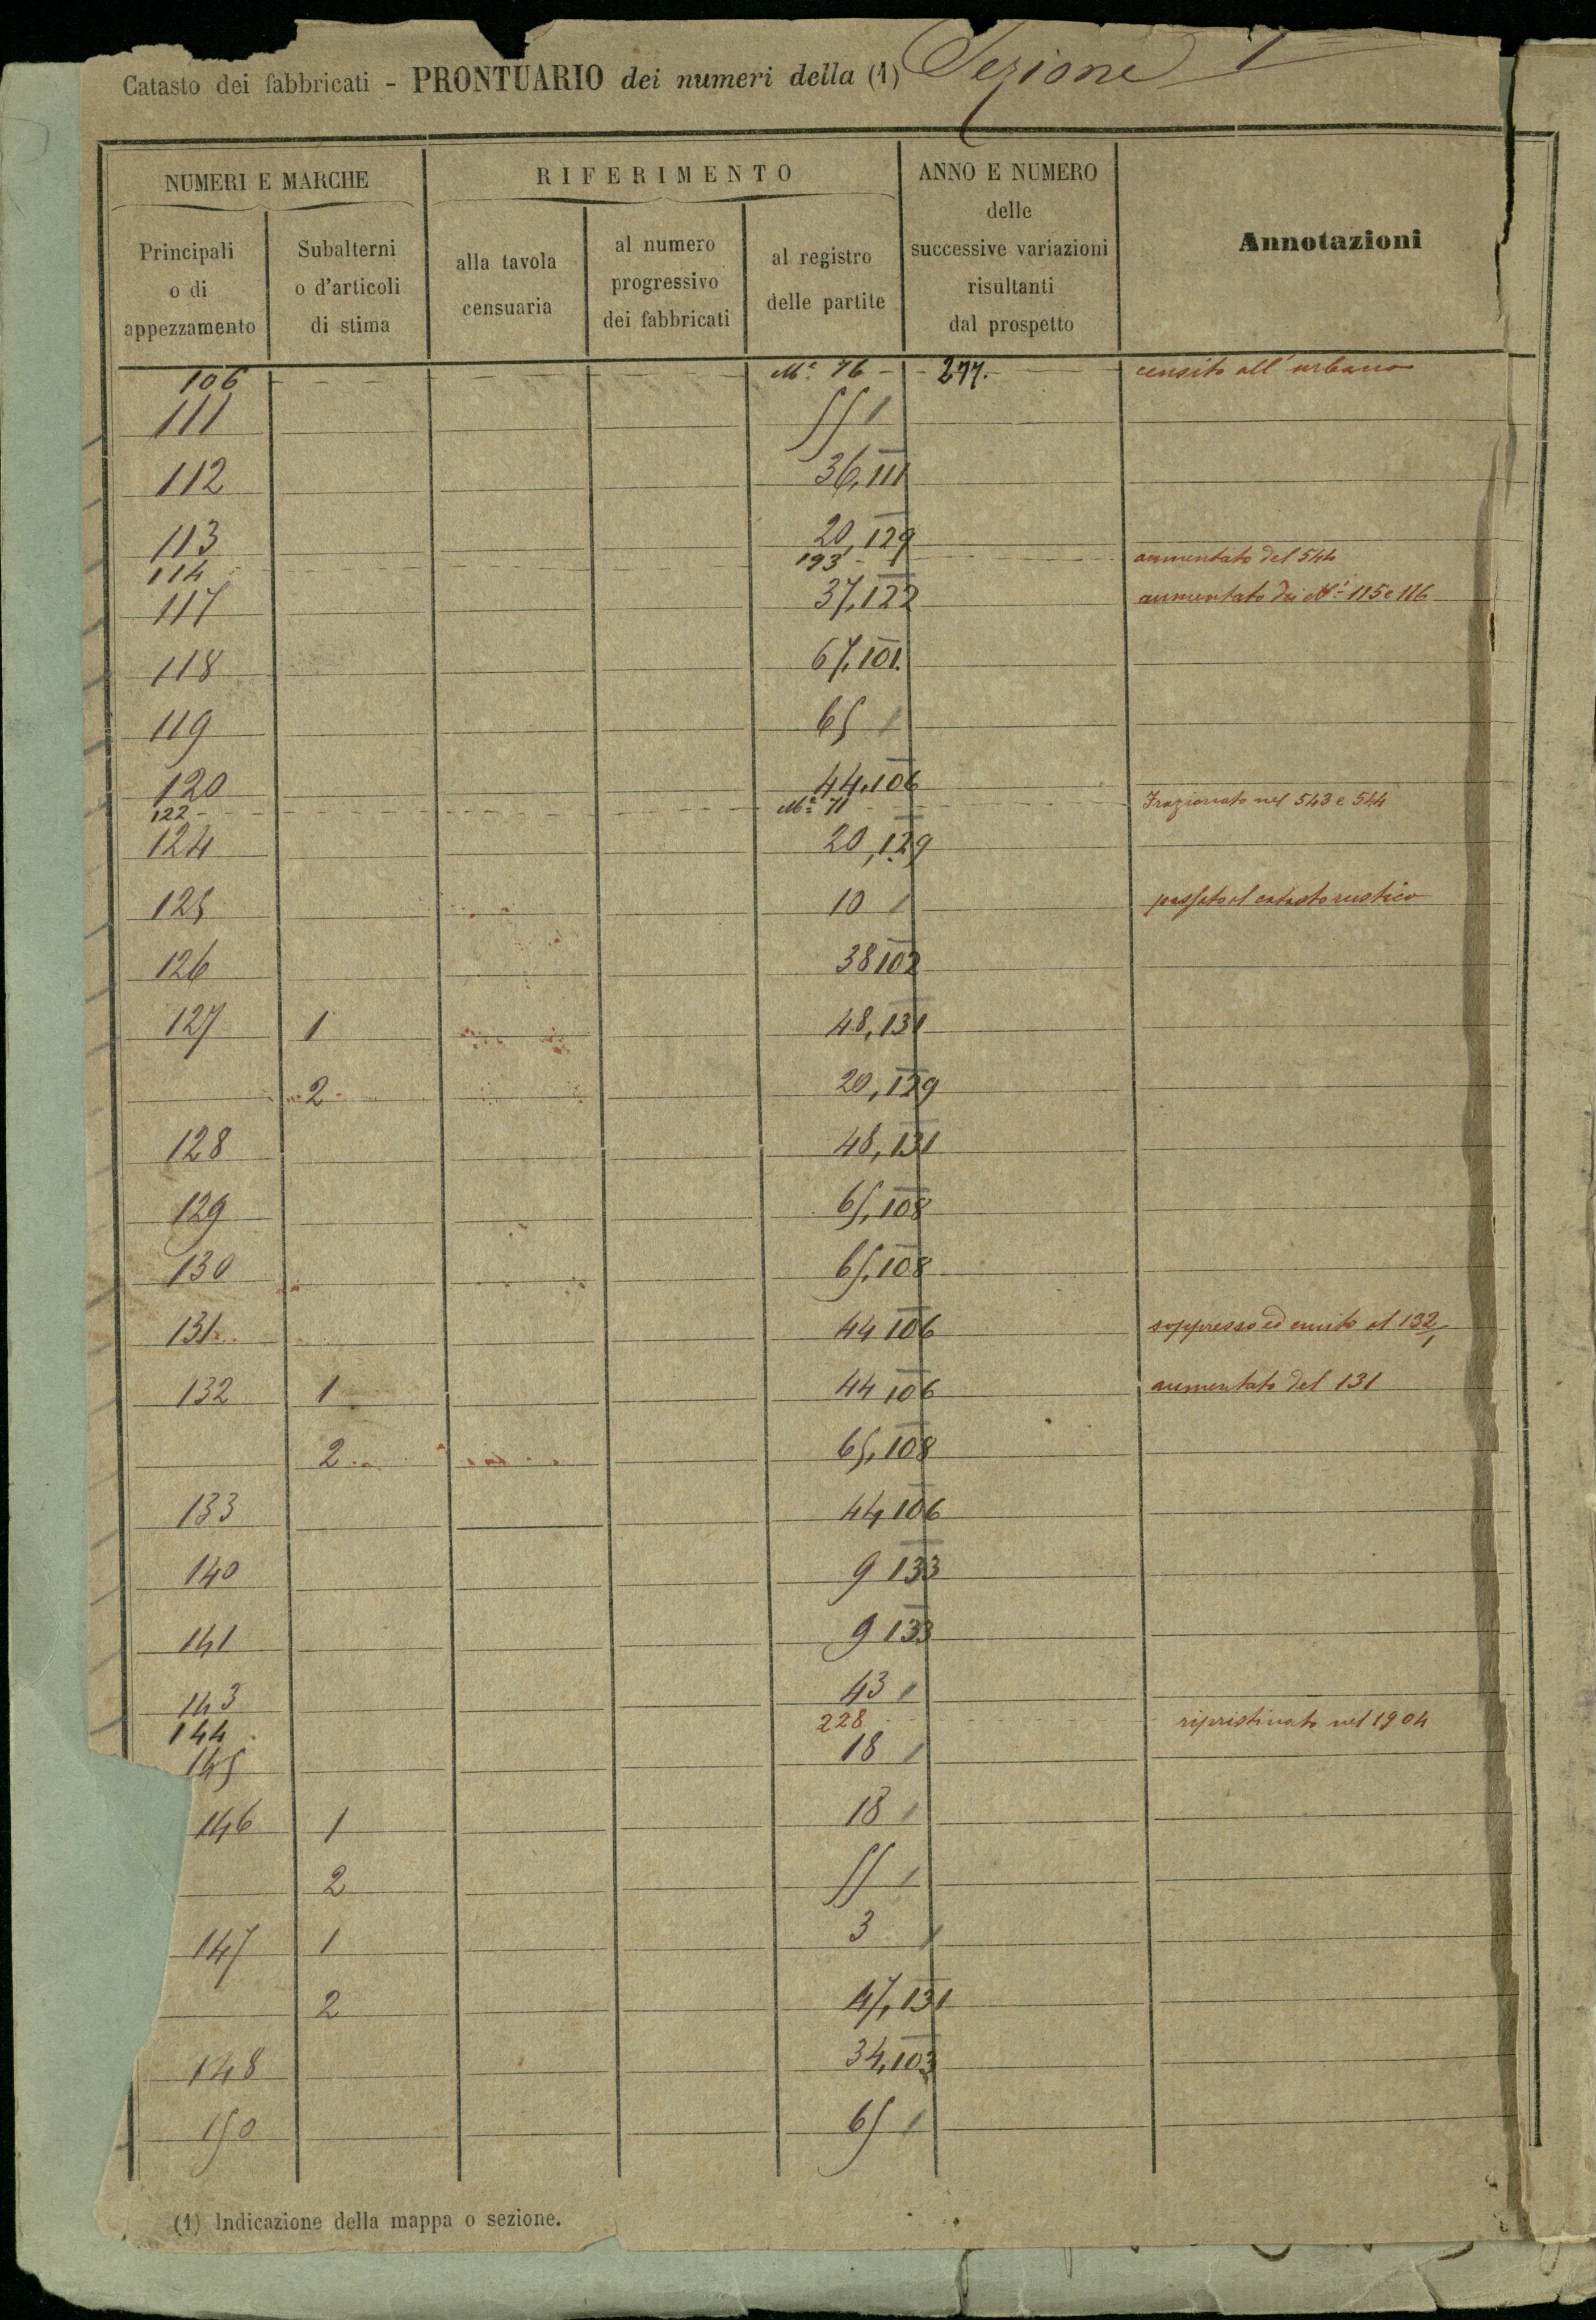 Catasto dei fabbricati - PRONTUARIO dei numeri della (1) Sezione I
NUMERI E MARCHE
RIFERIMENTO
ANNO E NUMERO
delle
successive variazioni
risultanti
dal prospetto
Annotazioni
Principali
o di
appezzamento
Subalterni
o d'articoli
di stima
alla tavola
censuaria
al numero
progressivo
dei fabbricati
al registro
delle partite
106 Mª 76 277. censito all' urbano
111 55
112 36,111
113 20,129
114 193 aumentato del 544
117 37,122 aumentato dei Nⁱ 115 e 116
118 67,101.
119 65
120 44,106
122 Mª 71 Frazionato nel 543 e 544
124 20,129
125 10 passato al catasto rustico
126 38 102
127 1 48,131
2 20,129
128 48,131
129 65,108
130 65,108
131 44 106 soppresso ed unito al 132/1
132 1 44 106 aumentato del 131
2 65,108
133 44 106
140 9 133
141 9 133
143 43
144 228 ripristinato nel 1904
145 18
146 1 18
2 55
147 1 3
2 47,131
148 34,103
150 65
(1) Indicazione della mappa o sezione.